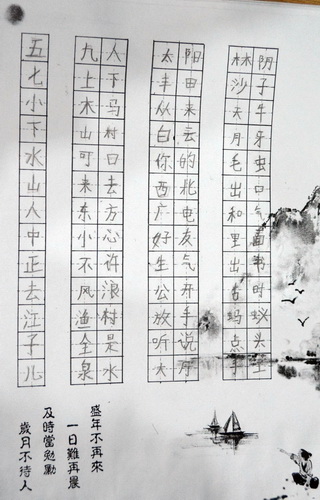 阴子牛牙虫口气面书时蚁头
林沙夫月毛出和里出蚂点手
阳甲来云的北电友气开手说
太丰从白你西广好生公放听大
人下马村口去方心许浪村是水
九上木山可来东小不风渔全泉
五七小下水山人中正去江子儿
盛年不再來
一日難再晨
及時當勉勵
歲月不待人